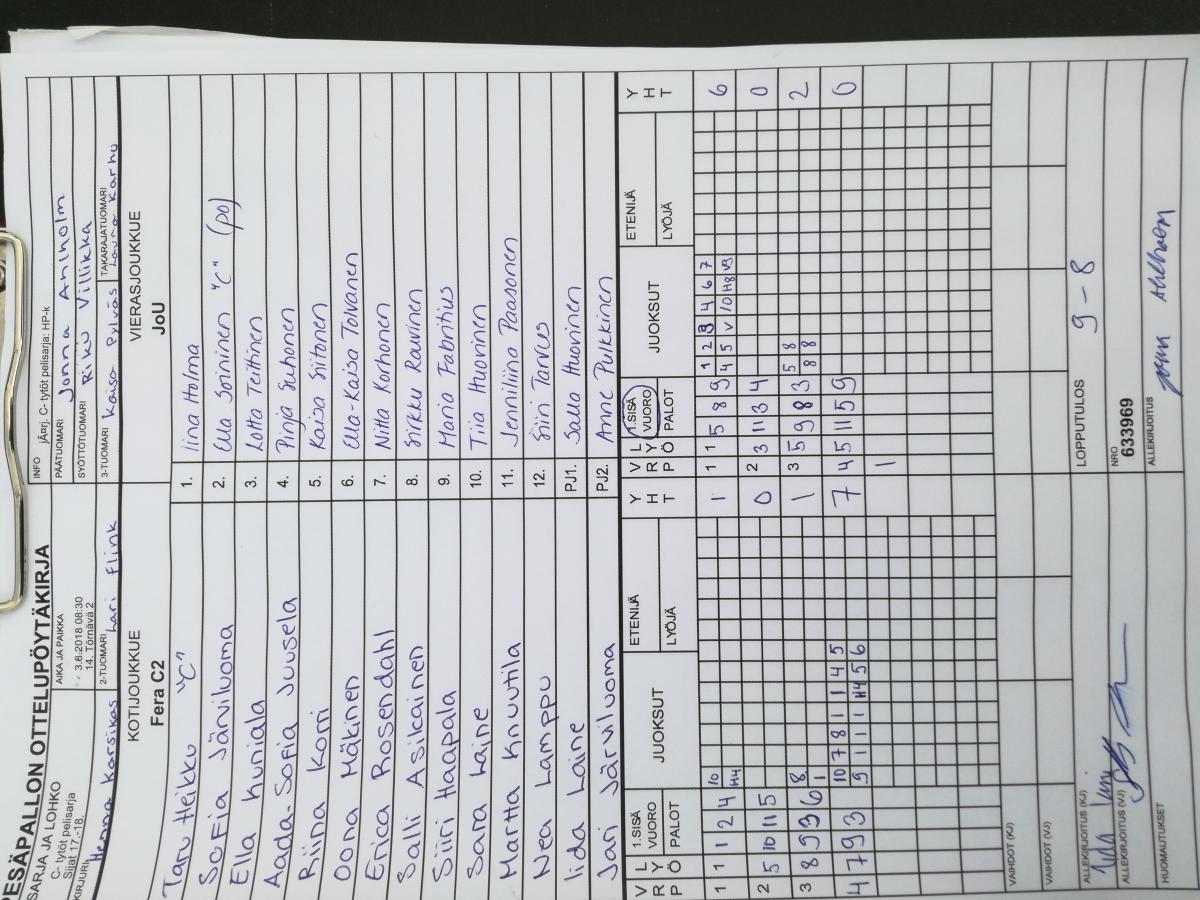 PESÄPALLON OTTELUPÖYTÄKIRJA
SARJA JA LOHKO
C- tytöt pelisarja
Sijat 17.-18.
AIKA JA PAIKKA
3.6.2018 08:30
14. Törnävä 2
INFO
jÃ¤rj. C- tytöt pelisarja: HP-k
PÄÄTUOMARI Jonna Ahlholm
SYÖTTÖTUOMARI Riku Villikka
KIRJURI Henna Korsikas
2-TUOMARI Lari Flink
3-TUOMARI Kaisa Pylväs
TAKARAJATUOMARI Laura Karhu
KOTIJOUKKUE
Fera C2
VIERASJOUKKUE
JoU
Taru Heikku "C" 1. Iina Holma
Sofia Järviluoma 2. Ella Soininen "C" (po)
Ella Kuniala 3. Lotta Teittinen
Aada-Sofia Juusela 4. Pinja Suhonen
Riina Korri 5. Kaisa Siitonen
Oona Mäkinen 6. Ella-Kaisa Tolvanen
Erica Rosendahl 7. Nitta Korhonen
Salli Asikainen 8. Sirkku Rauvinen
Siiri Haapala 9. Maria Fabritius
Sara Laine 10. Tiia Huovinen
Martta Knuutila 11. Jenniliina Paasonen
Nea Lamppu 12. Siiri Tarvus
Iida Laine PJ1. Salla Huovinen
Jari Järviluoma PJ2. Anne Pulkkinen
V R P L Y Ö 1.SISÄ VUORO PALOT JUOKSUT ETENIJÄ LYÖJÄ Y H T V R P L Y Ö 1.SISÄ VUORO PALOT JUOKSUT ETENIJÄ LYÖJÄ Y H T
1 1 1 2 4 10 1 1 1 5 8 9 1 2 3 4 6 7 6
H4 4 5 V 10 H8 V3
2 5 10 11 5 0 2 3 11 3 4 0
3 8 9 3 6 8 1 3 5 9 8 3 5 8 2
1 8 8
4 7 9 3 10 7 8 1 1 4 5 7 4 5 11 5 9 0
9 1 1 1 H4 5 6
1
VAIHDOT (KJ)
VAIHDOT (VJ)
ALLEKIRJOITUS (KJ)
LOPPUTULOS 9 - 8
ALLEKIRJOITUS (VJ)
NRO
633969
HUOMAUTUKSET
ALLEKIRJOITUS